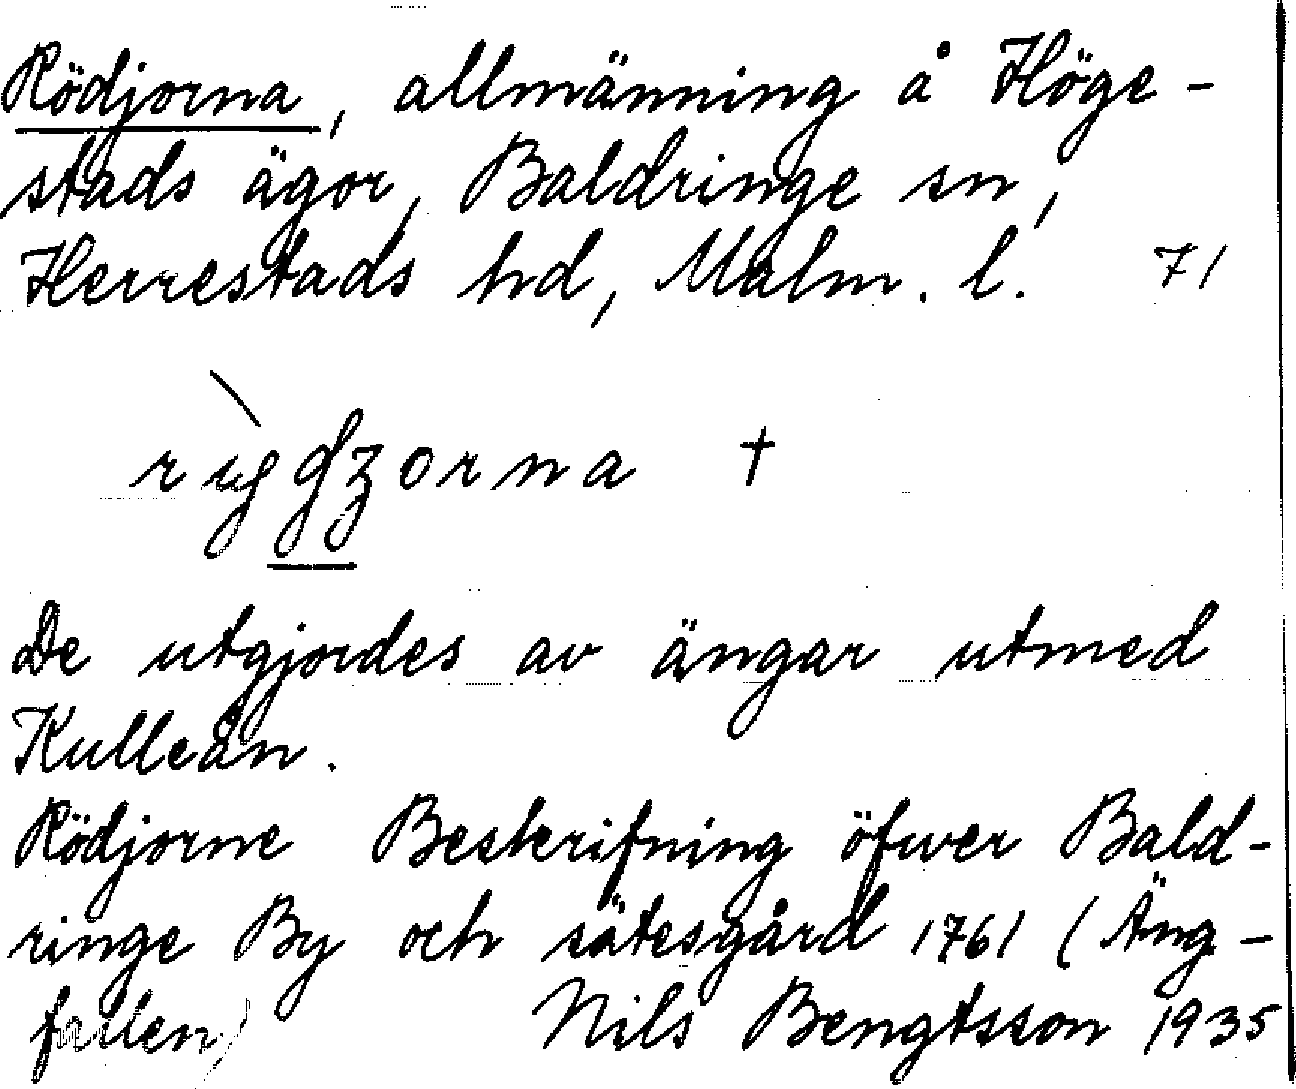 Rödjorna, allmänning å Höge-
stads ägor, Baldringe sn,
Herrestads hd, Malm. l. 71
De utgjordes av ängar utmed
Kulleån.
Rödjorne Beskrifning öfwer Bald-
ringe By och sätesgård 1761 (Äng-
fallen)
Nils Bengtsson 1935